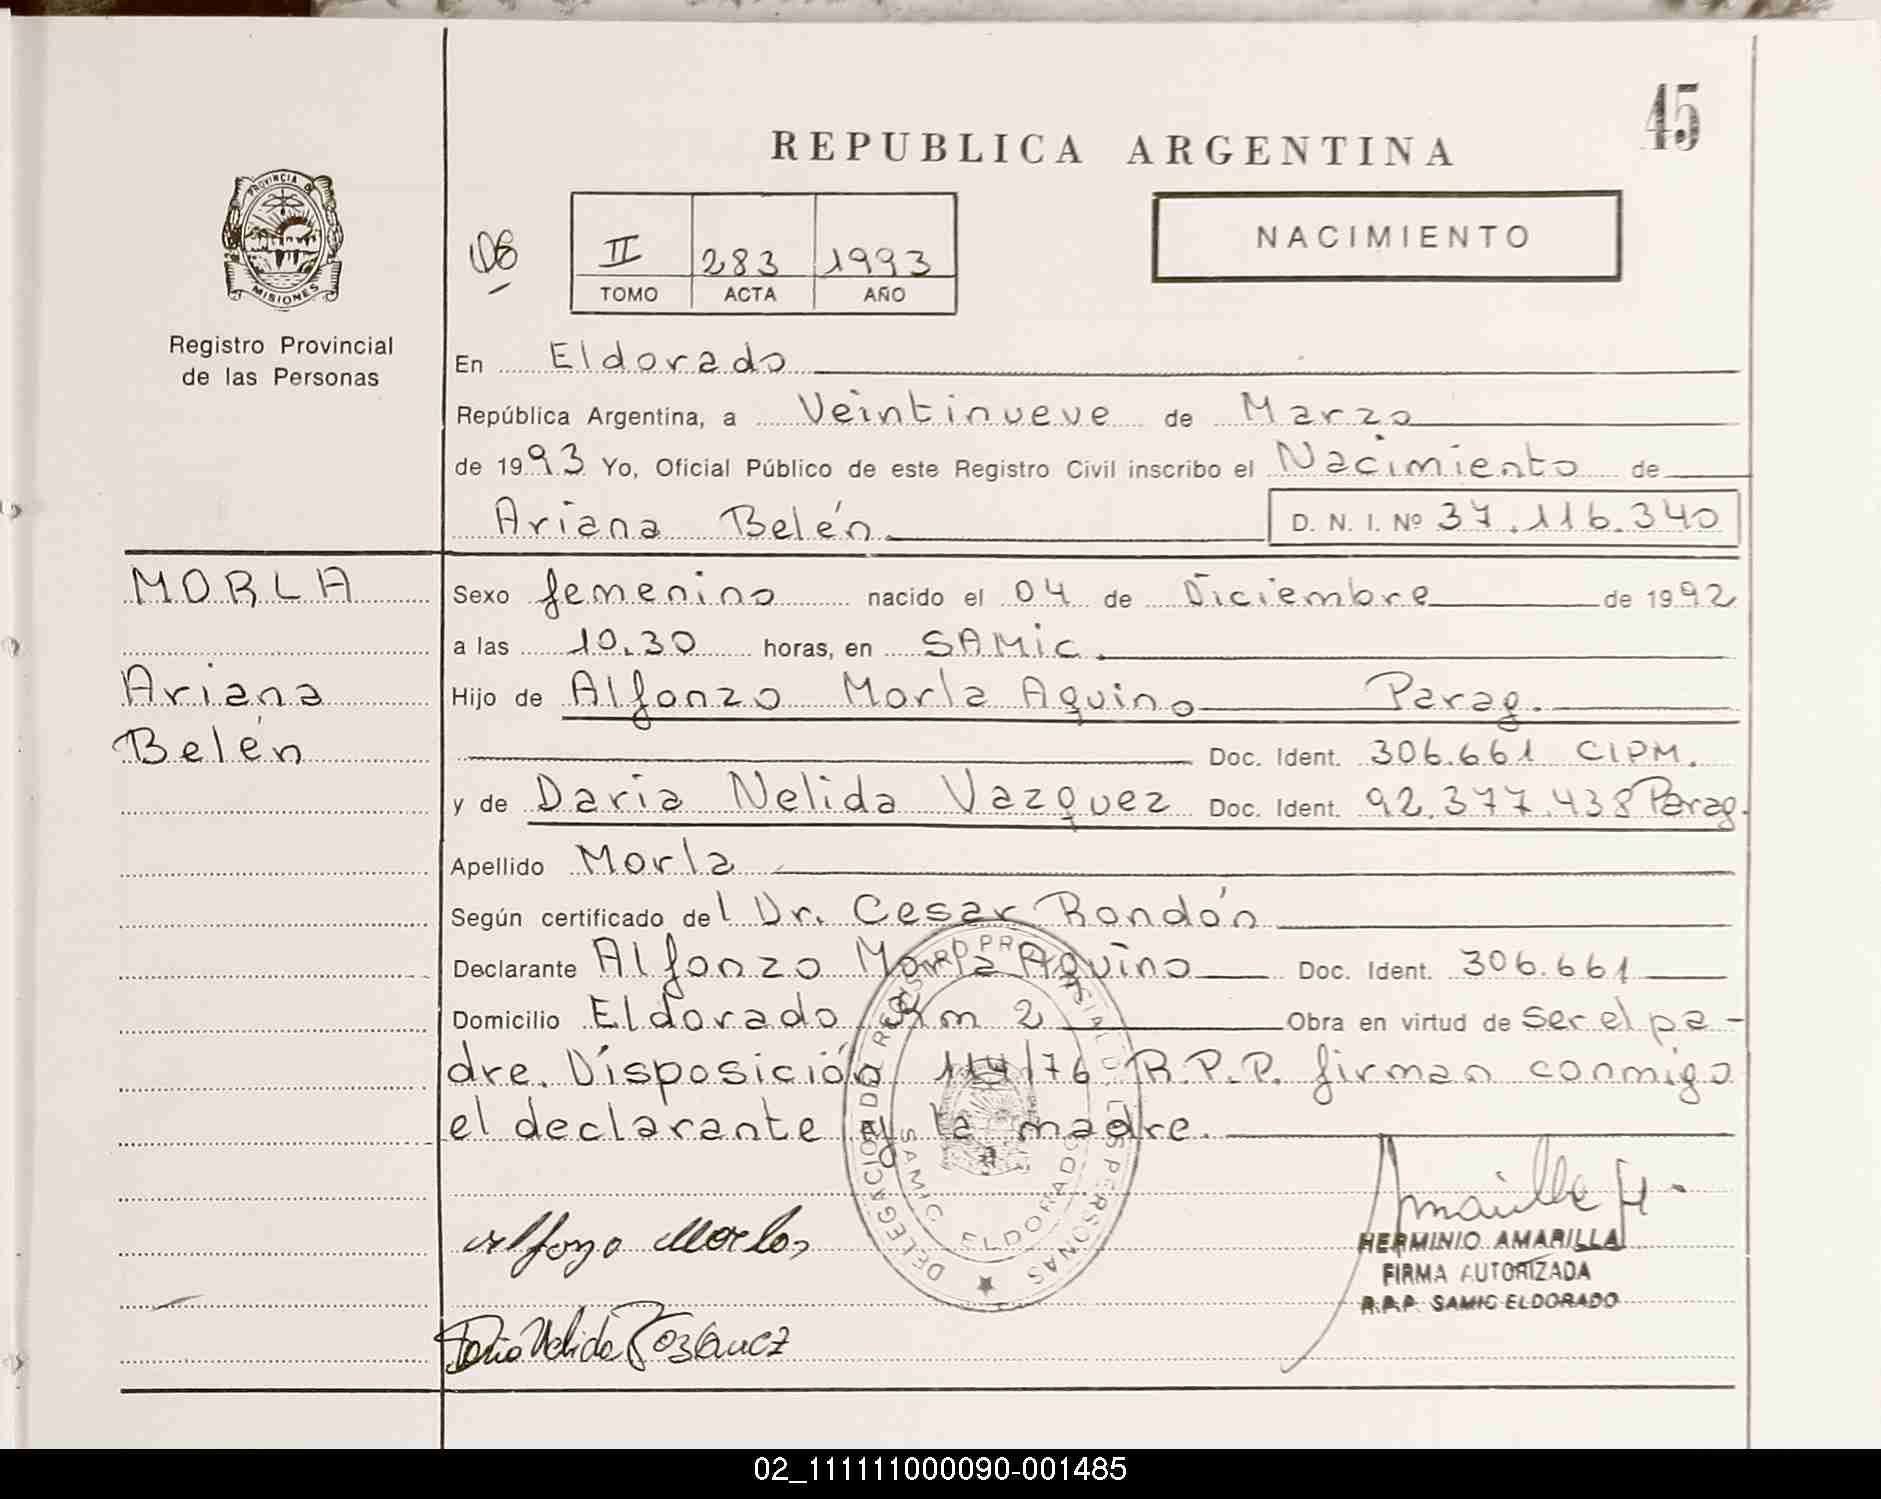 45
REPUBLICA ARGENTINA
PROVINCIA DE
MISIONES
Registro Provincial
de las Personas
II 283 1993
TOMO ACTA AÑO
NACIMIENTO
En Eldorado
República Argentina, a Veintinueve de Marzo
de 1993 Yo, Oficial Público de este Registro Civil inscribo el Nacimiento de
Ariana Belén D. N. I. Nº 37.116.340
MORLA
Ariana
Belén
Sexo femenino nacido el 04 de Diciembre de 1992
a las 10.30 horas, en SAMic.
Hijo de Alfonzo Morla Aquino Parag.
Doc. Ident. 306.661 CIPM.
y de Daria Nelida Vazquez Doc. Ident. 92.377.438 Parag.
Apellido Morla
Según certificado del Dr. Cesar Rondón
Declarante Alfonzo Morla Aquino Doc. Ident. 306.661
Domicilio Eldorado Km 2 Obra en virtud de ser el pa-
dre. Disposición 114/76 R.P.P. firman conmigo
el declarante y la madre.
SAMIC ELDORADO
Alfonzo Morla
HERMINIO AMARILLA
FIRMA AUTORIZADA
R.P.P. SAMIC ELDORADO
Daria Nelida Vazquez
02_111111000090-001485